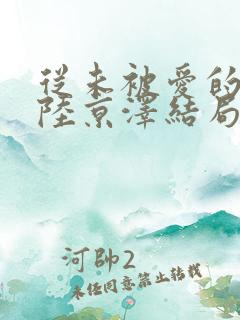 從未被愛的
陸京澤結局
河帥2
未任同意禁止转载